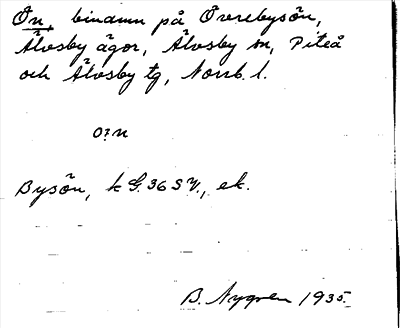 Ön, binamn på Överebysön,
Älvsby ägor, Älvsby sn, Piteå
och Älvsby tg, Norrb. l.
Bysön, k G. 36 S V., ek.
B. Nygren 1935.